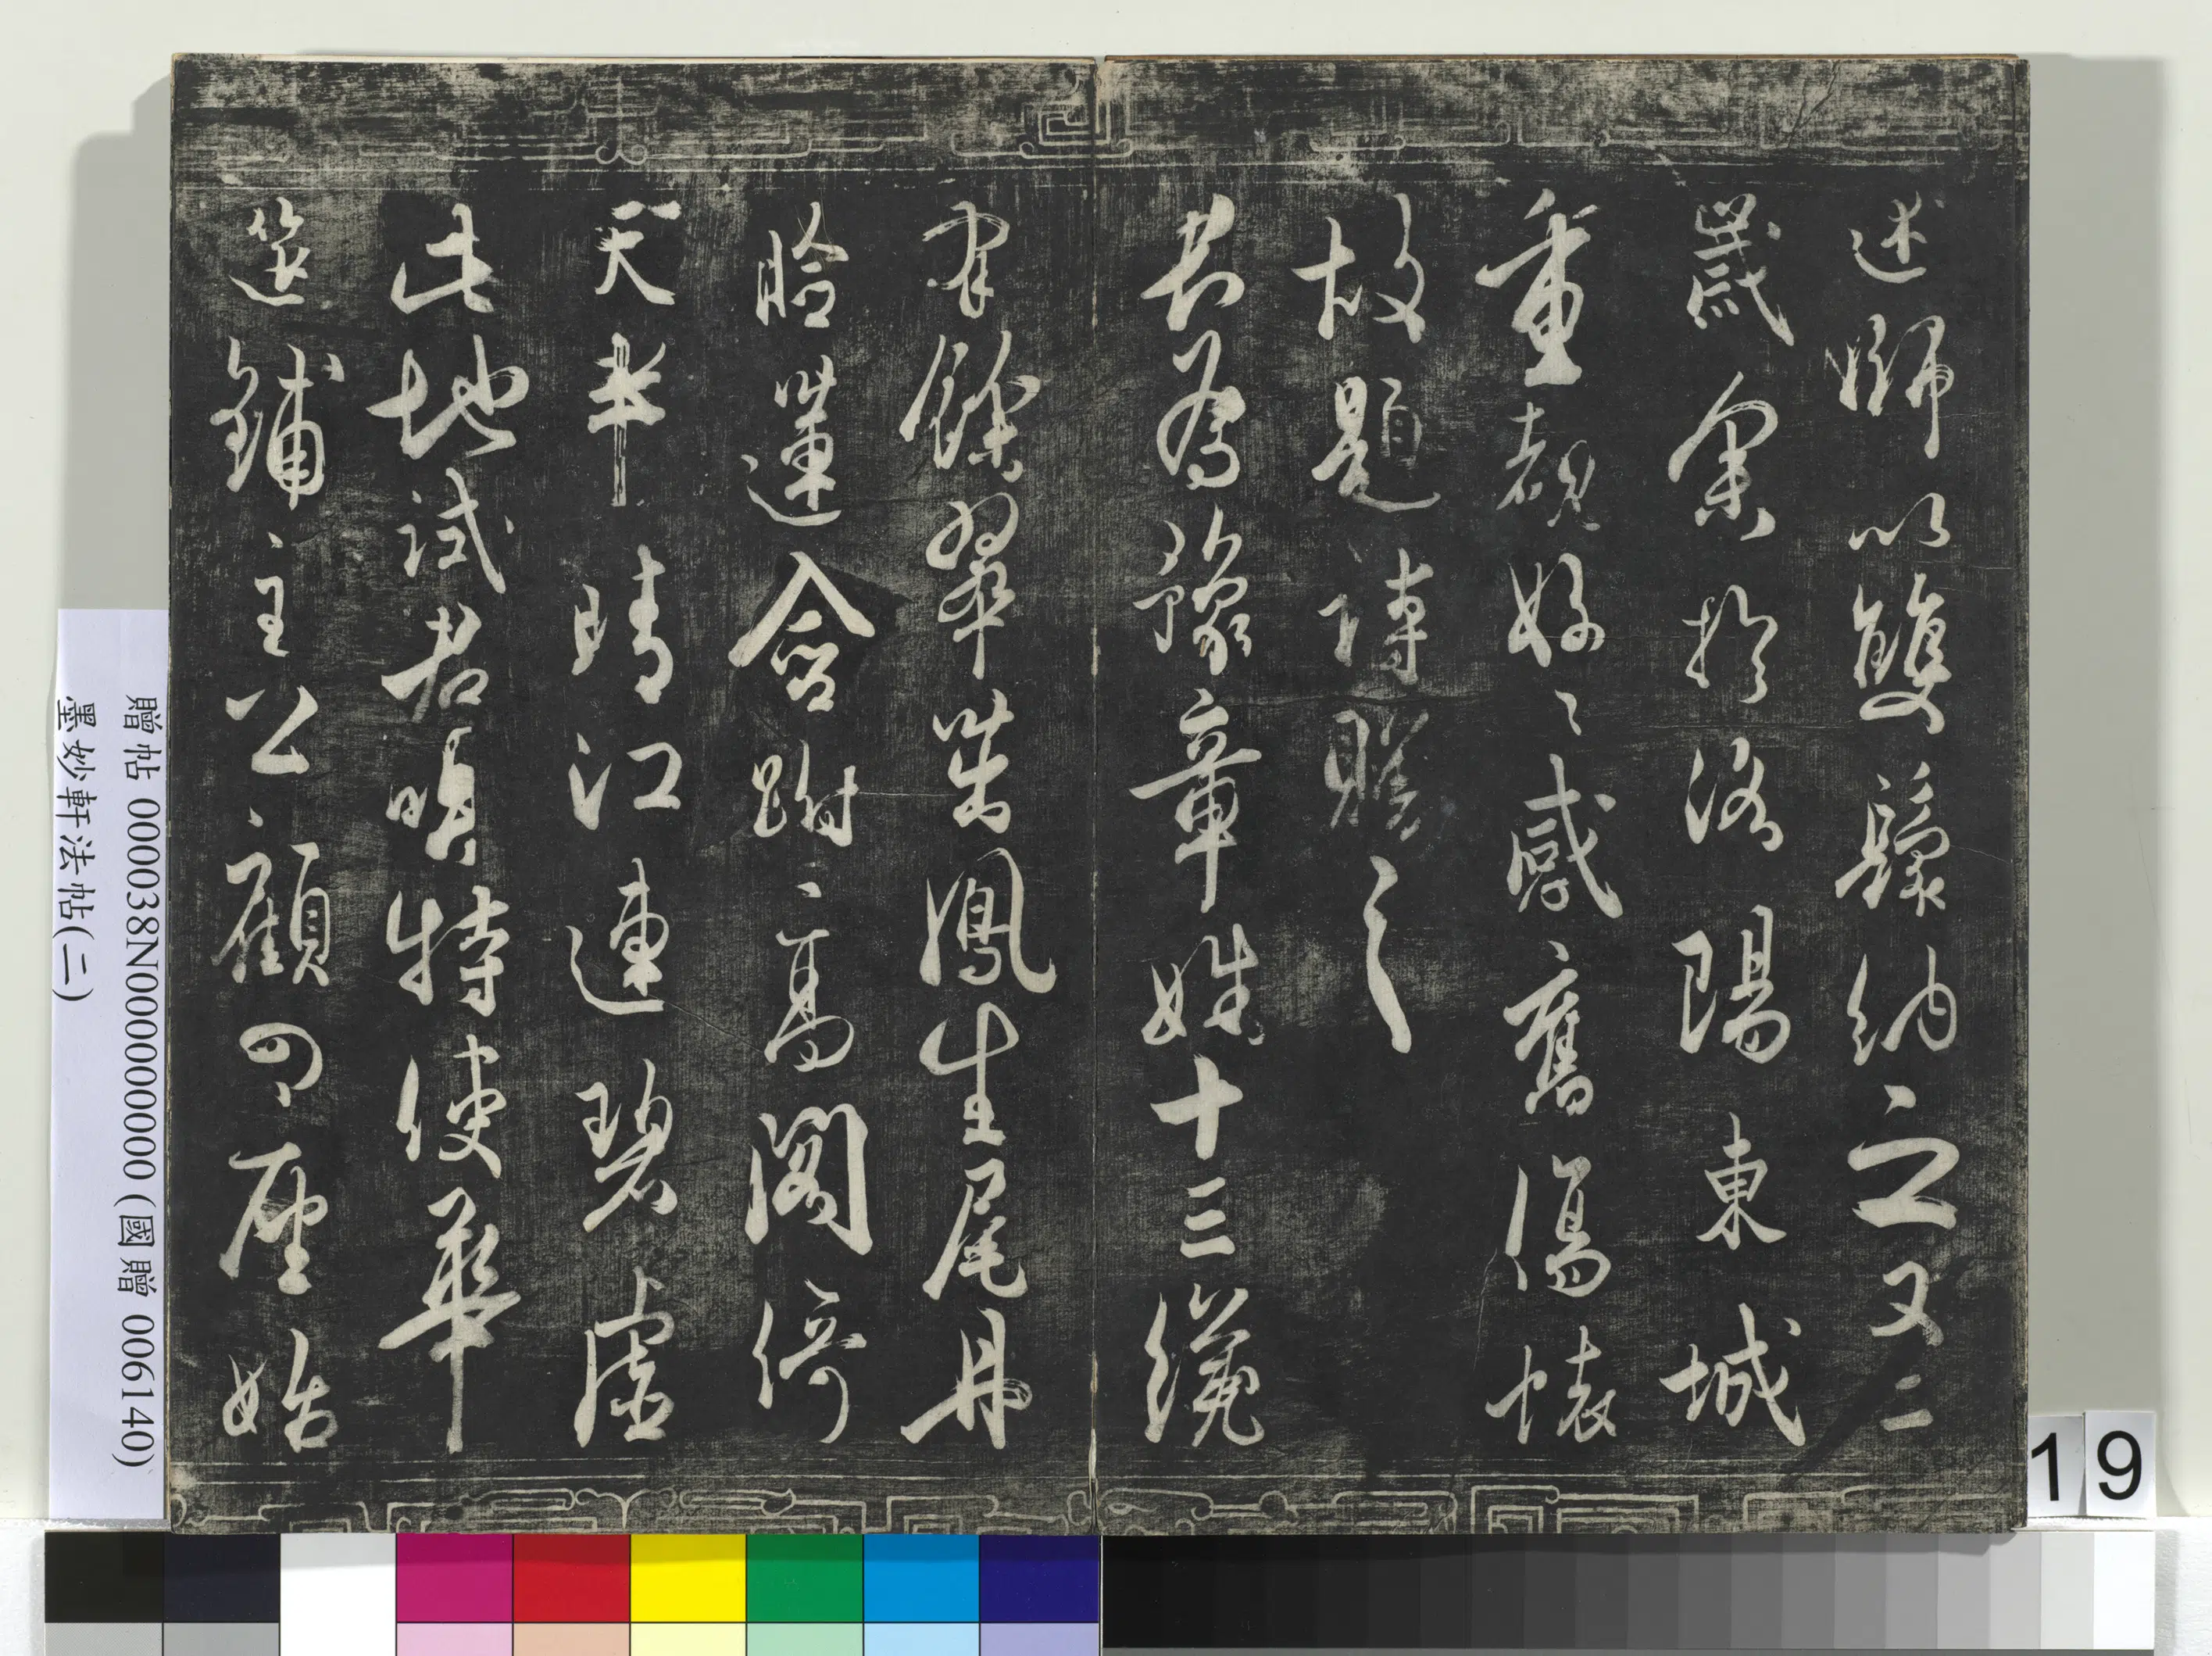 述師以雙鬟納之又二
歲余於洛陽東城
重覩好〻感舊傷懷
故題詩贈之
君為豫章姝十三纔
有餘翠茁鳳生尾丹
臉蓮含跗高閣倚
天半晴江連碧虛
此地試君唱特使華
筵鋪主公顧四座始
贈帖 000038N000000000 (國贈 006140)
墨妙軒法帖(二)
19